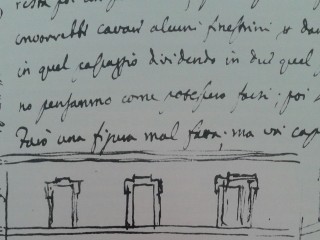 resta poi
vorrebbe cavar alcuni finestrini p dar
in quel passaggio dividendo in due quel
no pensammo come potessero farsi; poi
Farò una figura mal fatta, ma voi cap